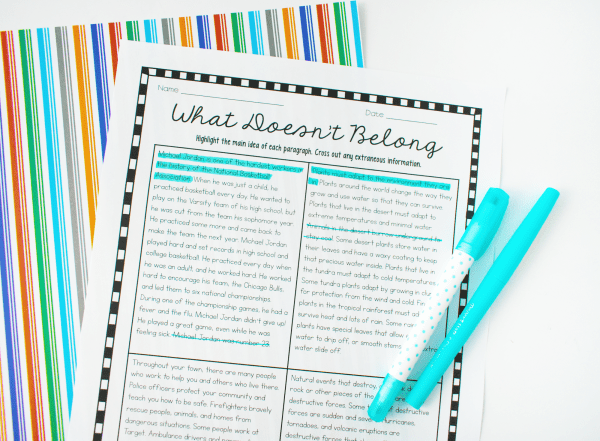 Name
Date
What Doesn't Belong
Highlight the main idea of each paragraph. Cross out any extraneous information.
Michael Jordan is one of the hardest workers in
the history of the National Basketball
Association. When he was just a child, he
practiced basketball every day. He wanted to
play on the Varsity team of his high school, but
he was out from the team his sophomore year.
He practiced some more and came back to
make the team the next year. Michael Jordan
played hard and set records in high school and
college basketball. He practiced every day when
he was an adult, and he worked hard. He worked
hard to encourage his team, the Chicago Bulls,
and led them to six national championships.
During one of the championship games, he had a
fever and the flu. Michael Jordan didn't give up!
He played a great game, even while he was
feeling sick. Michael Jordan was number 23.
Plants must adapt to the environment they are
in. Plants around the world change the way they
grow and use water so that they can survive.
Plants that live in the desert must adapt to
extreme temperatures and minimal water.
Animals in the desert burrow underground to
stay cool. Some desert plants store water in
their leaves and have a waxy coating to keep
that precious water inside. Plants that live in
the tundra must adapt to cold temperatures.
Some tundra plants adapt by growing in
for protection from the wind and cold.
plants in the tropical rainforest must
survive heat and lots of rain. Some rain
plants have special leaves that allow extra
water to drip off, or smooth stems
water slide off.
Throughout your town, there are many people
who work to help you and others who live there.
Police officers protect your community and
teach you how to be safe. Firefighters bravely
rescue people, animals, and homes from
dangerous situations. Some people work at
Target. Ambulance drivers and
Natural events that destroy,
rock or other pieces of the
destructive forces. Some destructive
forces are sudden and hurricanes,
tornadoes, and volcanic eruptions are
destructive forces